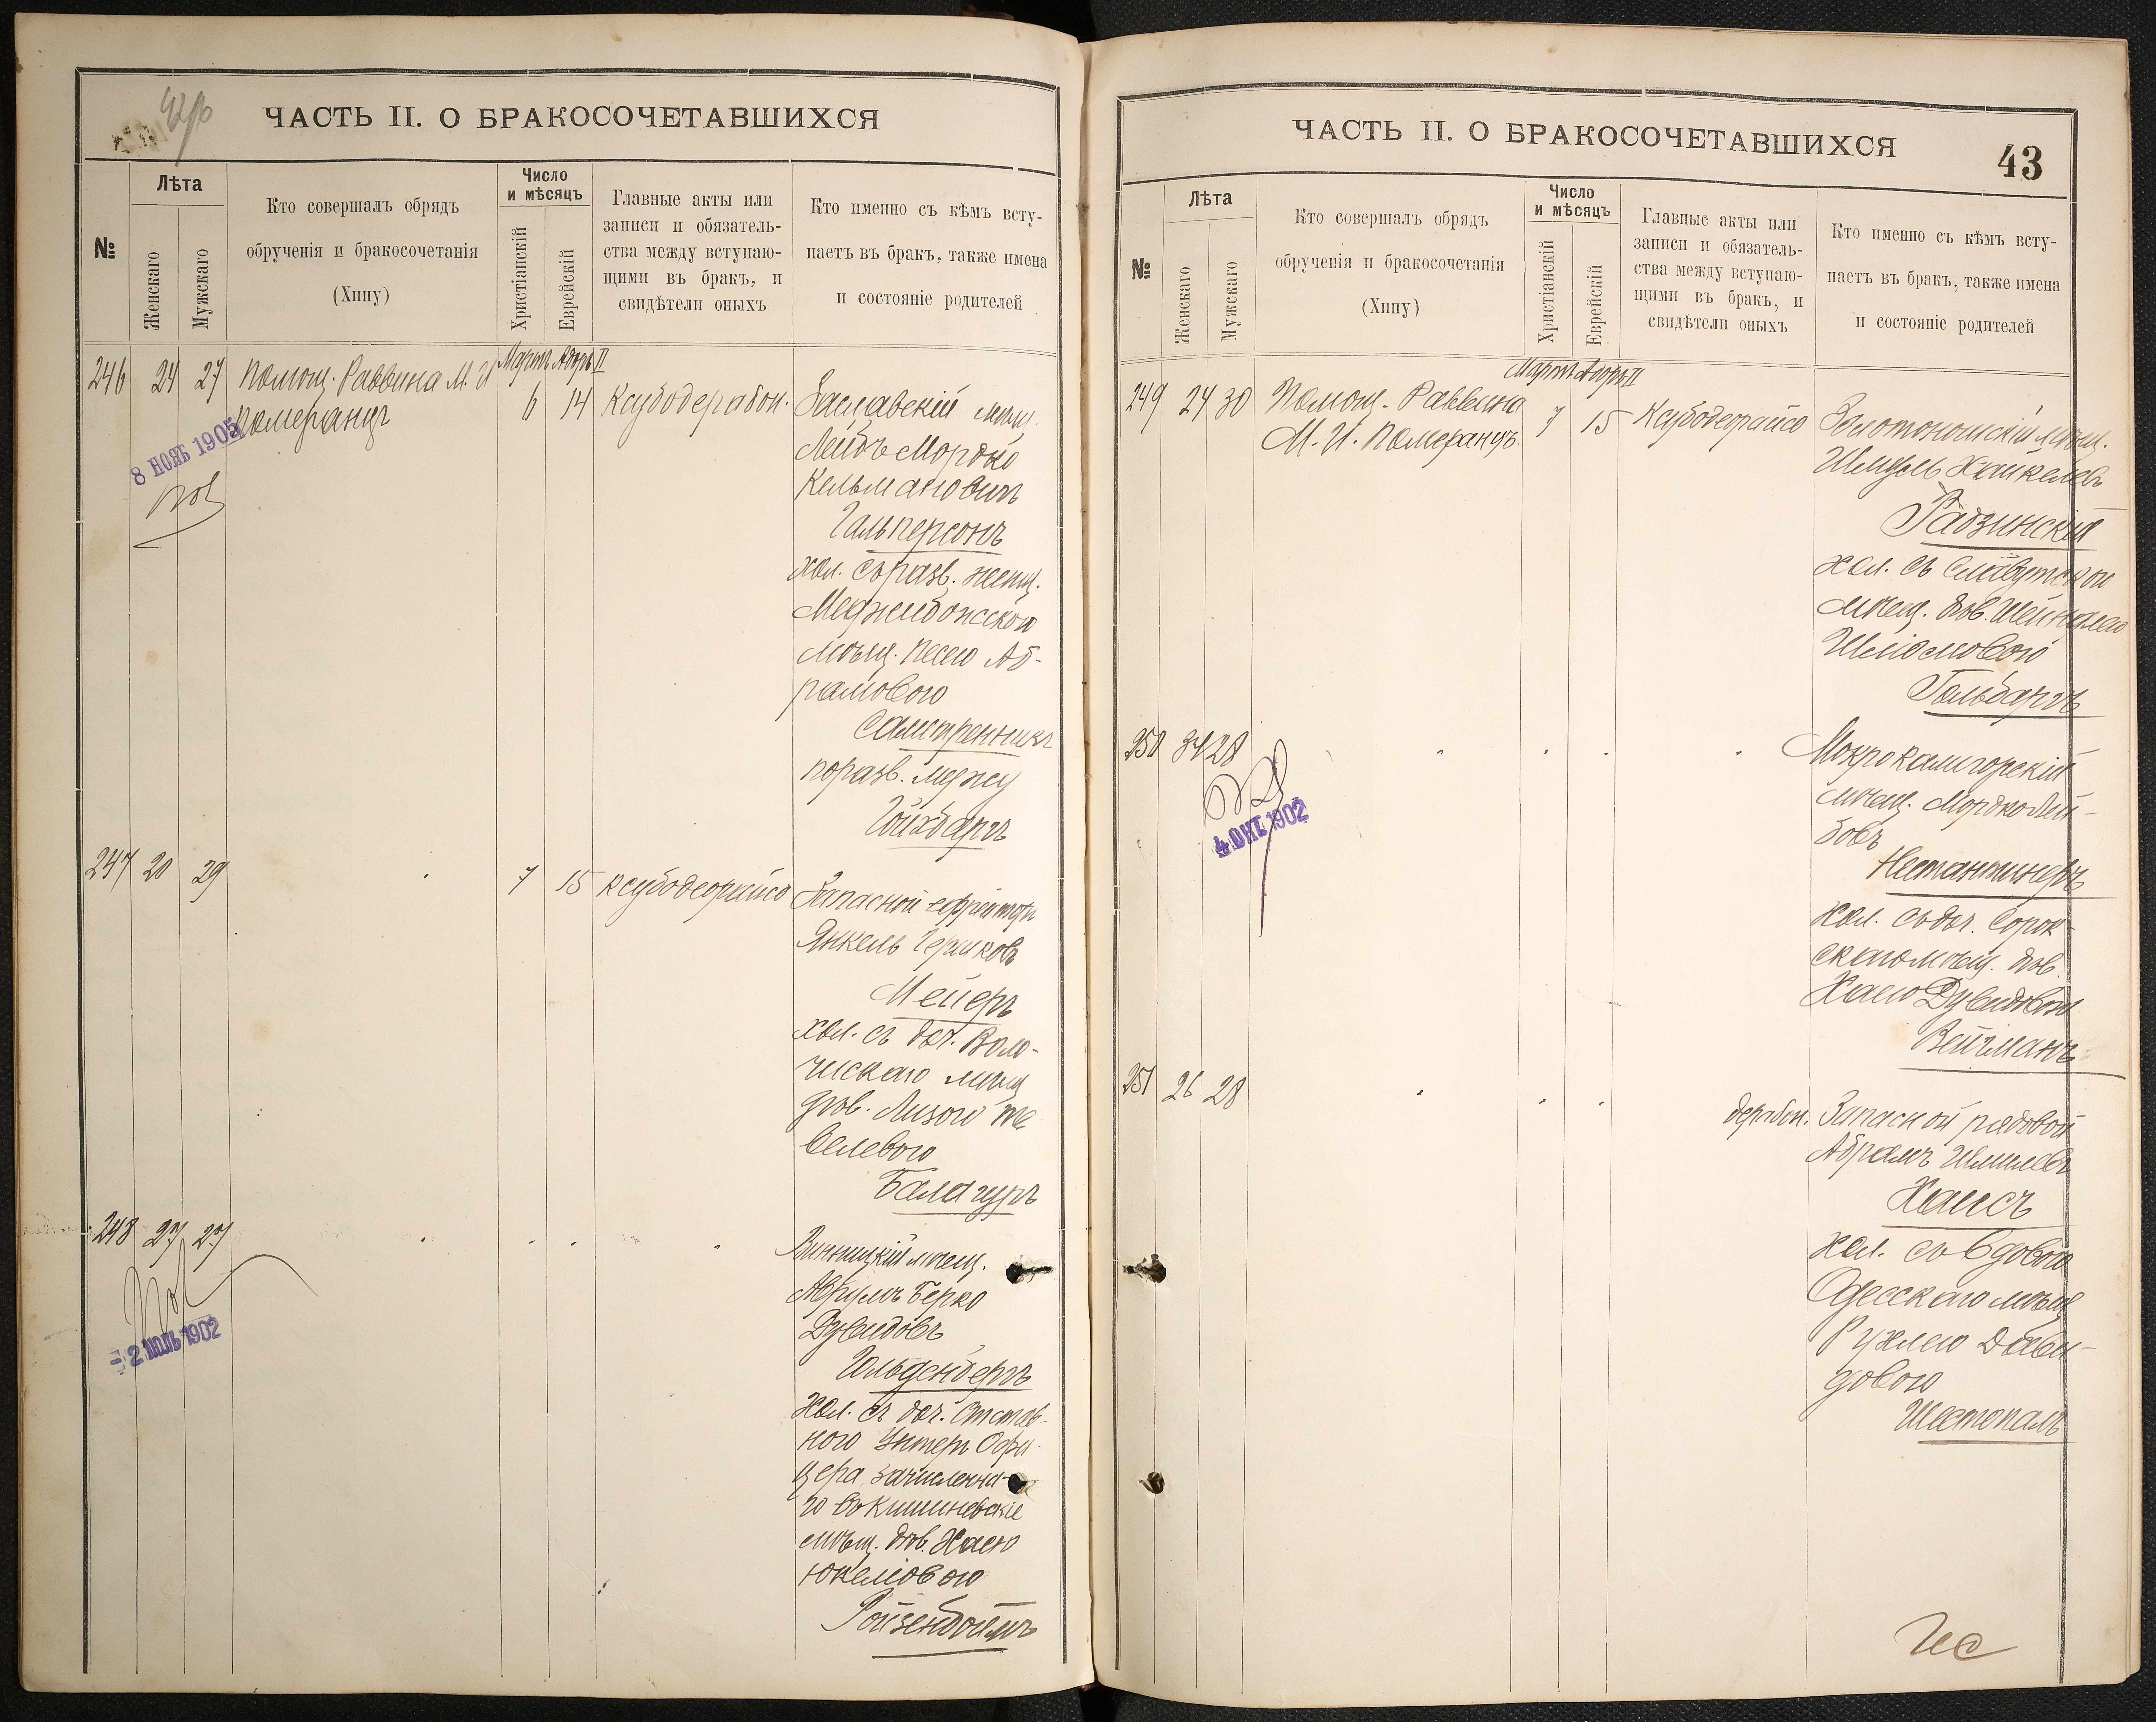 ЧАСТЬ II. О БРАКОСОЧЕТАВШИХСЯ
№
Лѣта
Женскаго
Мужскаго
Кто совершалъ обрядъ
обрученія и бракосочетанія
(Хипу)
Число
и мѣсяцъ
Христіанскій
Еврейскій
Главные акты или
записи и обязатель-
ства между вступаю-
щими въ бракъ, и
свидѣтели оныхъ
Кто именно съ кѣмъ всту-
паетъ въ бракъ, также имена
и состояніе родителей
Мартъ Адоръ II
246 24 27 Помощ. Раввина М. И.
Померанцъ
6 14 Ксубодерабон.
Заславскій мѣщ.
Лейбъ Мордко
Кельмановичъ
Гальперсонъ
хол. съ разв. женщ.
Меджибожскою
мѣщ. Песею Аб-
рамовою
Самстренникъ
по разв. мужу
Гойхбаргъ
8 НОЯБ 1905
247 20 29
7 15 Ксубодеорайсо
Запасной ефрейторъ
Янкель Гершковъ
Мейеръ
хол. съ доч. Воло-
чискаго мѣщ.
дѣв. Лизою Те
велевою
Балагуръ
248 27 27
Винницкій мѣщ.
Аврумъ Берко
Дувидовъ
Гольденбергъ
хол. съ доч. Отстав-
ного Унтеръ Офи-
цера зачисленна-
го въ Кишиневскіе
мѣщ. дѣв. Хаею
Юкелювою
Ройзенбоймъ
- 2 ИЮЛЬ 1902
ЧАСТЬ II. О БРАКОСОЧЕТАВШИХСЯ
43
№
Лѣта
Женскаго
Мужскаго
Кто совершалъ обрядъ
обрученія и бракосочетанія
(Хипу)
Число
и мѣсяцъ
Христіанскій
Еврейскій
Главные акты или
записи и обязатель-
ства между вступаю-
щими въ бракъ, и
свидѣтели оныхъ
Кто именно съ кѣмъ всту-
паетъ въ бракъ, также имена
и состояніе родителей
Мартъ Адоръ II
249 24 30 Помощ. Раввина
М. И. Померанцъ
7 15 Ксубодеорайсо
Золотоношскій мѣщ.
Шмуль Хайкелевъ
Радзинскій
хол. съ Славутскою
мѣщ. дѣв. Шейнделею
Шліомовою
Гольдаръ
250 34 28
Мокрокалигорскій
мѣщ. Мордко Лей-
бовъ
хол. съ доч. Сорок-
скаго мѣщ. дѣв.
Хаею Дувидовою
Вейсманъ
4 ОКТ 1902
251 26 28
дерабон.
Запасной рядовой
Абрамъ Шмилевъ
Хаисъ
хол. съ вдовою
Одесскаго мѣщ.
Рухлею Дави-
довою
Шестопалъ